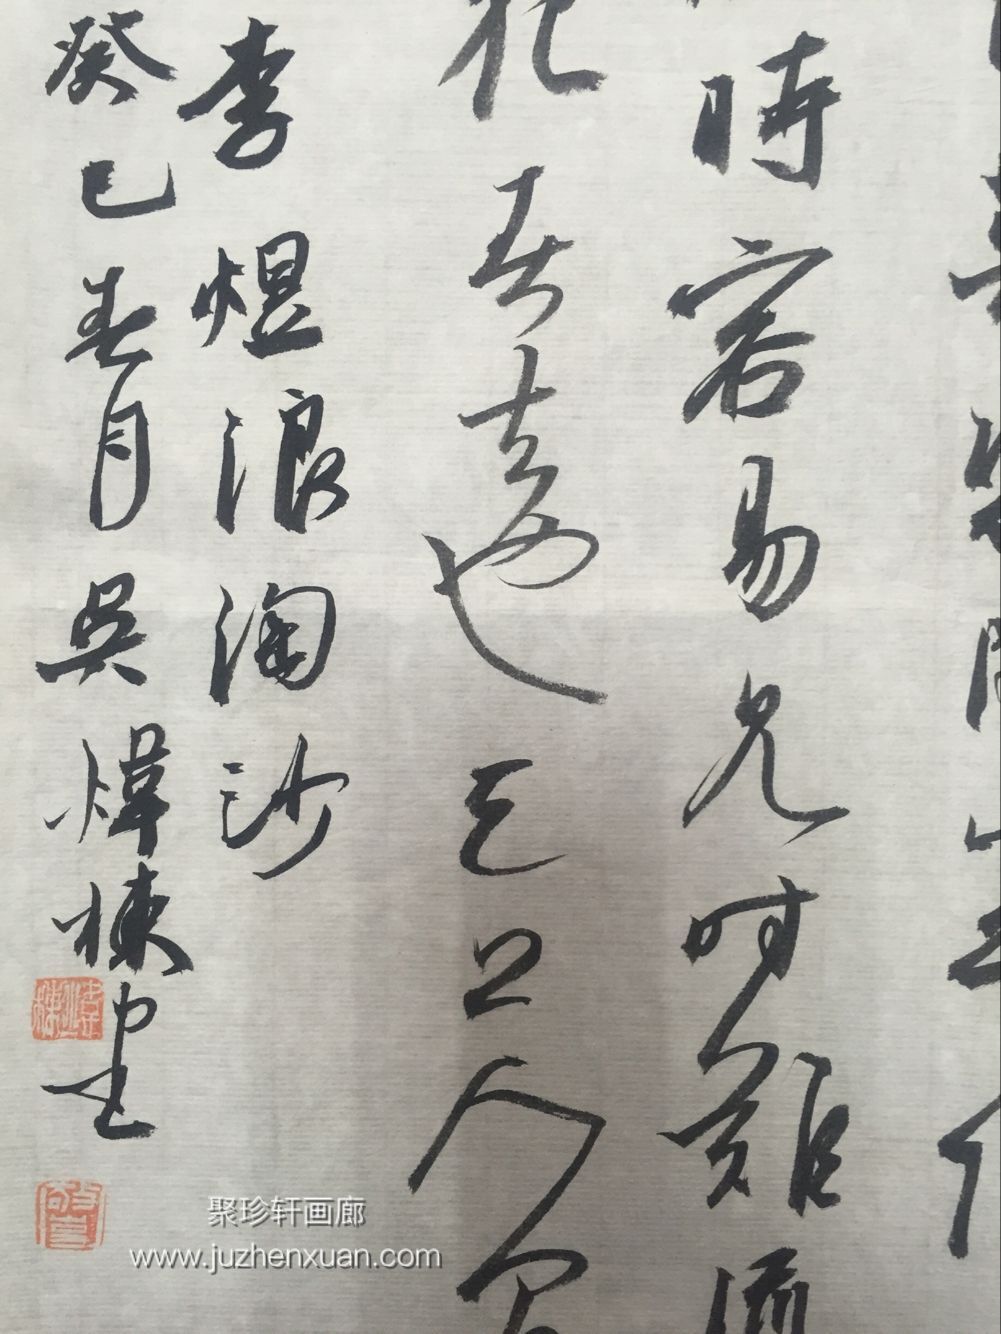 時容易見時難流
花春去也天上人間
李煜浪淘沙
癸巳春月吳煒棟書
聚珍轩画廊
www.juzhenxuan.com